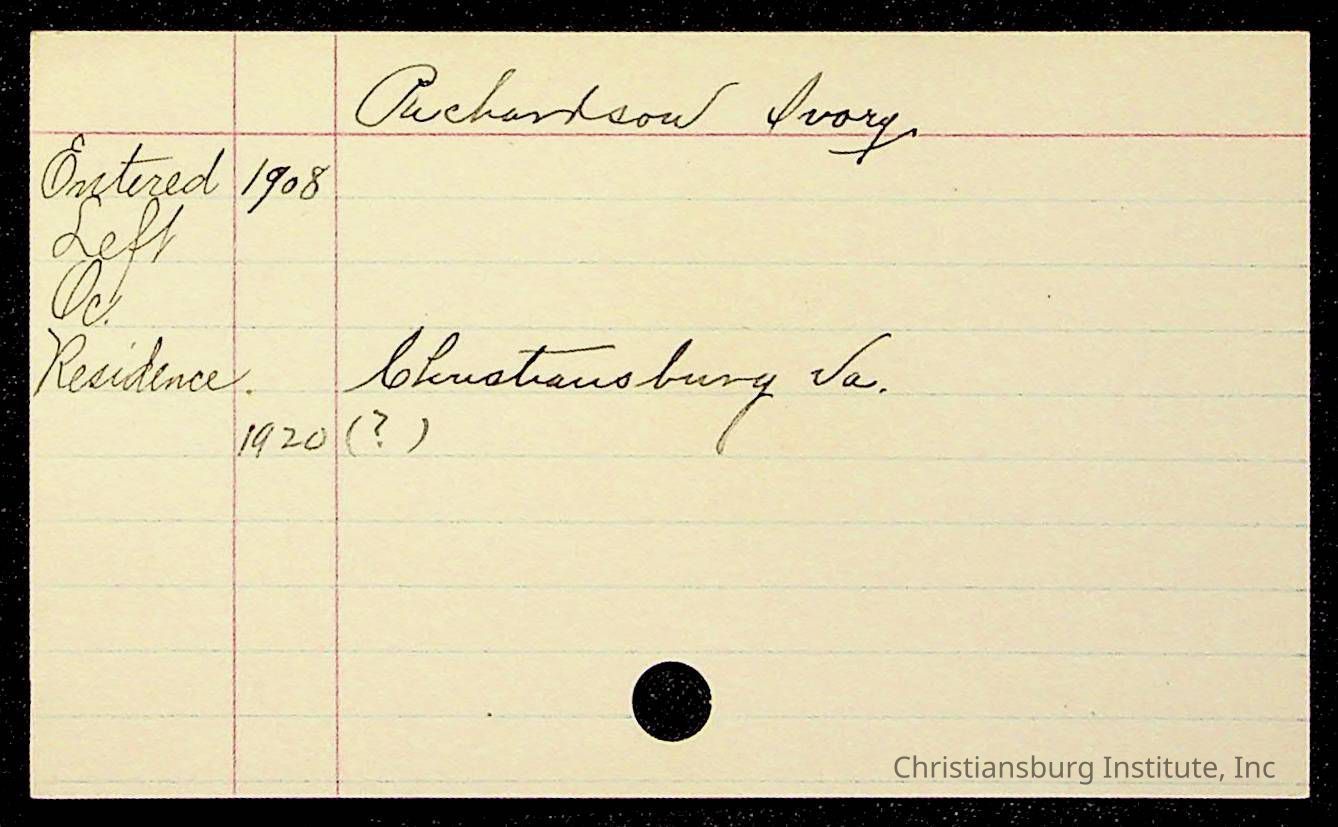 Richardson Ivory
Entered 1908
Left
Oc.
Residence. Christiansburg Va.
1920 (?)
Christiansburg Institute, Inc